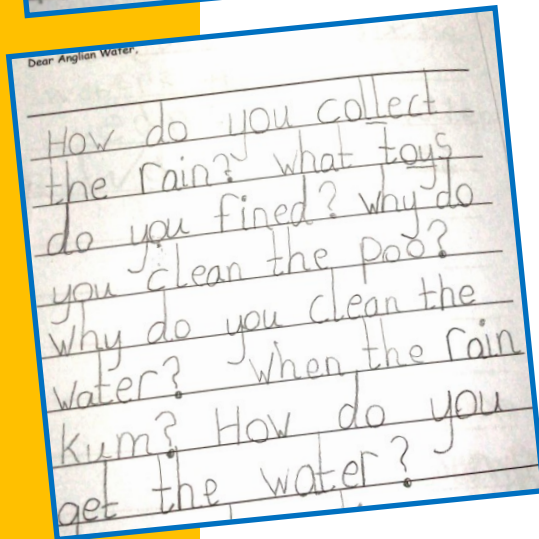 Dear Anglian Water,
How do you collect
the rain? what toys
do you fined? why do
you clean the poo?
why do you clean the
water? When the rain
kum? How do you
get the water?